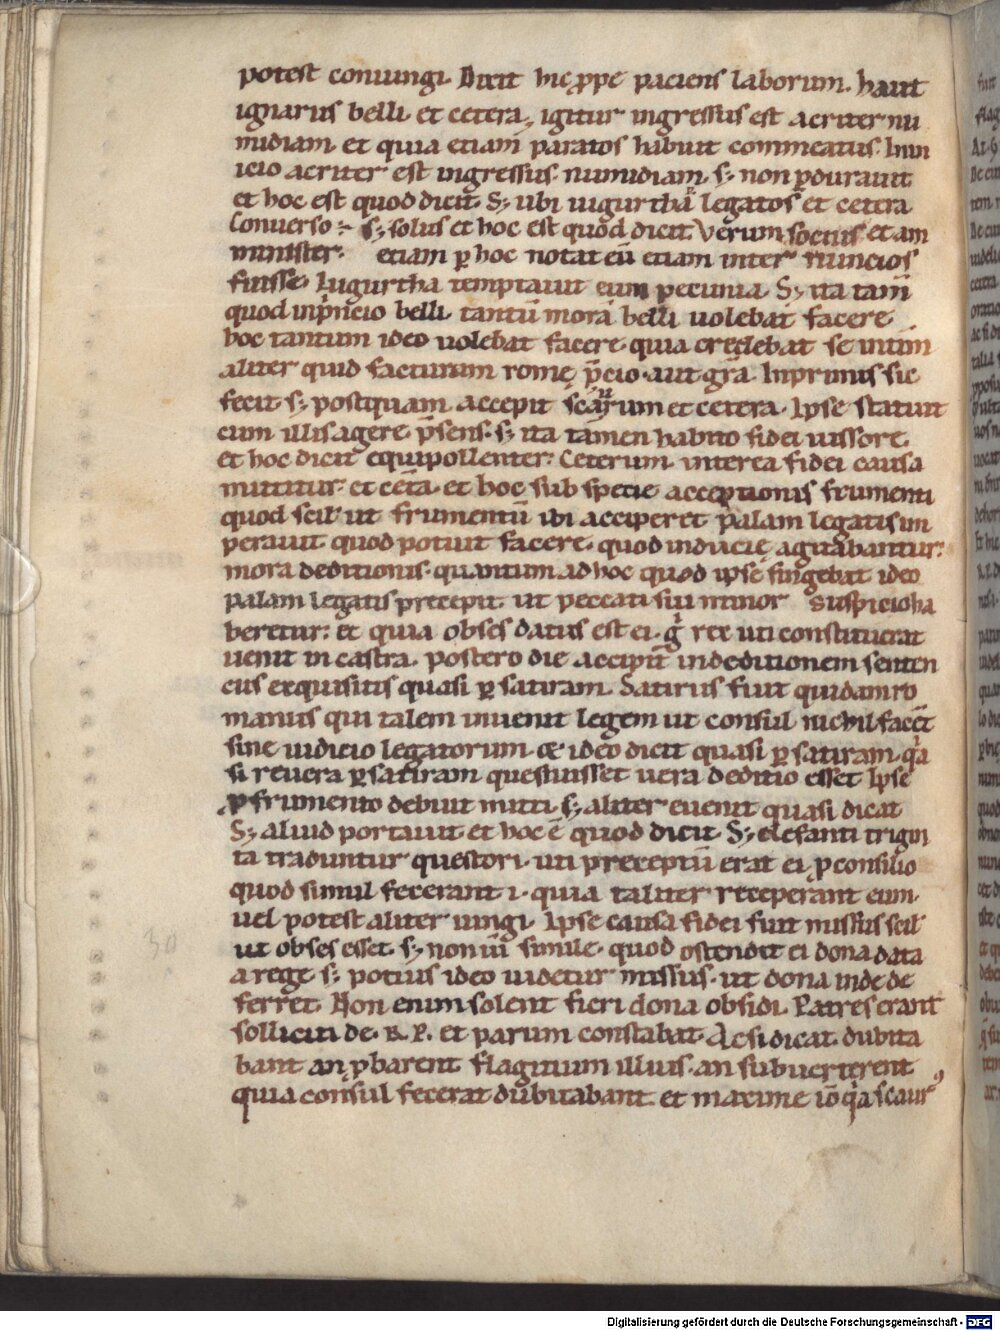 potest coniungi. Dixit hic ꝓpe paciens laborum. haut
ignarus belli. et cetera. igitur ingressus est acriter nu
midiam. et quia etiam paratos habuit commeatus. In in
icio acriter est ingressus numidiam. s; non ꝑdurauit
et hoc est quod dicit. S; ubi iugurtha legatos et cetera
Conuerso s; solus et hoc est quod dicit. Verum socius et am
minister. etiam ꝑ hoc notat eū etiam inter nuncios
fuisse. Iugurtha temptauit eum pecunia. S; ita tam̄
quod inp̄ncio belli. tantū morā belli uolebat facere.
hoc tantum ideo uolebat facere. quia credebat se initim̄
aliter quid facturum romę p̄cio. aut gr̄a. Inprimis sic
fecit s; postquam accepit et cetera. Ipse statuit
cum illis agere p̄sens. s; ita tamen habito fidei uissore.
et hoc dicit equipollenter. Ceterum interea fidei causa
mittitur. et cet̄a. et hoc sub specie acceptionis frumenti
quod scil' ut frumentū ibi acciperet palam legatis im
perauit quod potuit facere. quod inducię agitabantur.
mora deditionis. quantum ad hoc quod ipse fingebat ideo
palam legatis precepit. ut peccati sui minor suspicio ha
beretur. et quia obses datus est ei. g̊ rex uti constituerat
uenit in castra. postero die accipit̄ indeditionem senten
cus exquisitis quasi ꝑ satiram. Satirus fuit quidam ro
manus qui talem inuenit legem ut consul nichil facer̄t
sine iudicio legatorum. & ideo dicit quasi ꝑ satiram. qͣa
si reuera ꝑ satiram quesiuisset uera deditio esset. Ipse
ꝓ frumento debuit mitti. s; aliter euenit quasi dicat
S; aliud portauit et hoc ē quod dicit. S; elefanti trigin
ta traduntur questori. uti preceptū erat ei ꝓ consilio
quod simul fecerant .i. quia taliter receperant eum.
uel potest aliter iungi. Ipse causa fidei fuit missus scil'
ut obses esset. s; non simile. quod ostendit ei dona data
a rege s; potius ideo uidetur missus. ut dona inde de
ferret. Non enim solent fieri dona obsidi. Patres erant
solliciti de. R. P. et parum constabat. Ac si dicat. dubita
bant an ꝓbarent flagitium illius. an subuerterent
quia consul fecerat dubitabant. et maxime iō qͣa scaur'
30
Digitalisierung gefördert durch die Deutsche Forschungsgemeinschaft - DFG